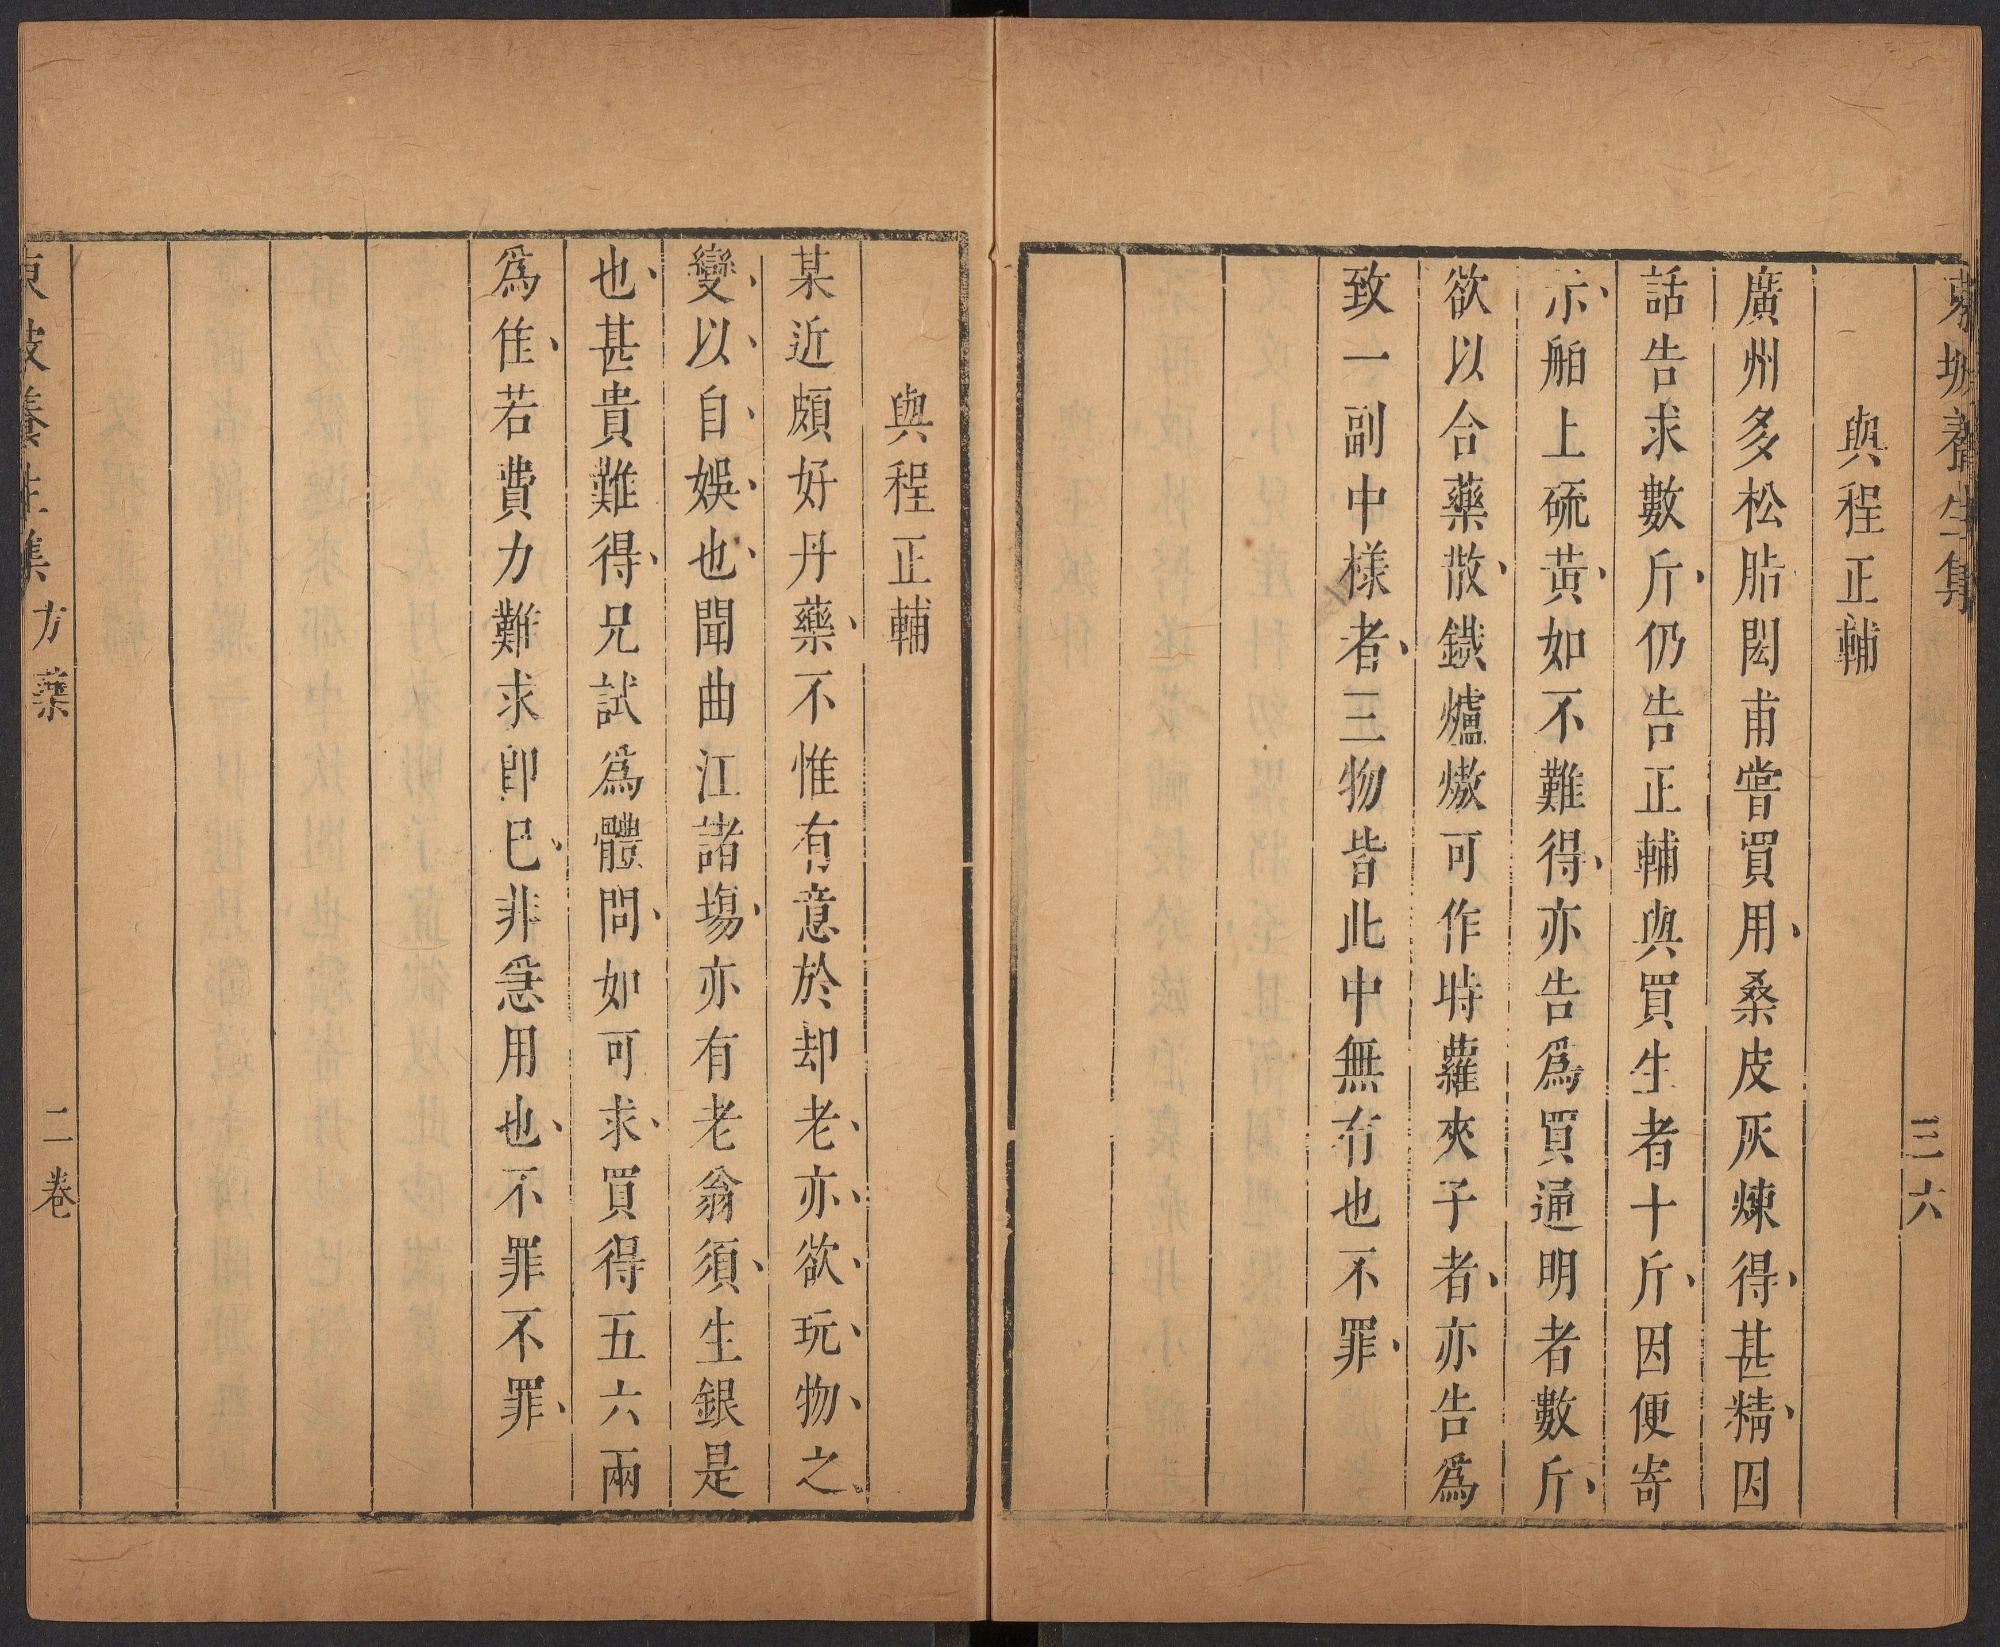 東坡養生集 三六
與程正輔
廣州多松脂閎甫嘗買用桑皮灰煉得甚精因
話告求數斤仍告正輔與買生者十斤因便寄
示舶上硫黃如不難得亦告爲買通明者數斤
欲以合藥散鐵爐熬可作時蘿夾子者亦告爲
致一副中樣者三物皆此中無有也不罪
與程正輔
某近頗好丹藥不惟有意於却老亦欲玩物之
變以自娛也聞曲江諸場亦有老翁須生銀是
也甚貴難得兄試爲體問如可求買得五六兩
爲佳若費力難求卽已非急用也不罪不罪
東坡養生集 方藥 二卷